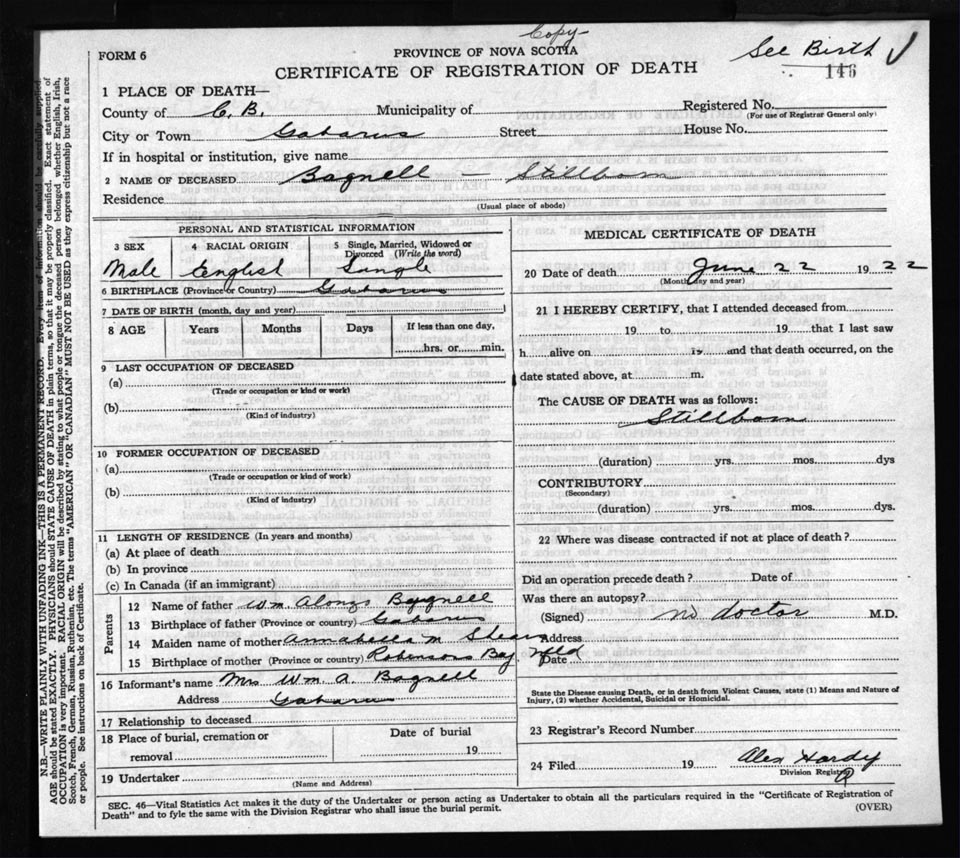 Copy
FORM 6
PROVINCE OF NOVA SCOTIA
See Birth
CERTIFICATE OF REGISTRATION OF DEATH
146
1 PLACE OF DEATH—
County of C.B. Municipality of Registered No.
(For use of Registrar General only)
City or Town Gabarus Street House No.
If in hospital or institution, give name
2 NAME OF DECEASED Bagnell — Stillborn
Residence
(Usual place of abode)
PERSONAL AND STATISTICAL INFORMATION
3 SEX 4 RACIAL ORIGIN 5 Single, Married, Widowed or Divorced (Write the word)
Male English Single
6 BIRTHPLACE (Province or Country) Gabarus
7 DATE OF BIRTH (month, day and year)
8 AGE Years Months Days If less than one day,
hrs. or min.
9 LAST OCCUPATION OF DECEASED
(a)
(Trade or occupation or kind or work)
(b)
(Kind of industry)
10 FORMER OCCUPATION OF DECEASED
(a)
(Trade or occupation or kind of work)
(b)
(Kind of industry)
11 LENGTH OF RESIDENCE (In years and months)
(a) At place of death
(b) In province
(c) In Canada (if an immigrant)
Parents
12 Name of father Wm. Alonzo Bagnell
13 Birthplace of father (Province or country) Gabarus
14 Maiden name of mother Annabella M Shears
15 Birthplace of mother (Province or country) Robinsons Bay Nfld
16 Informant's name Mrs Wm. A. Bagnell
Address Gabarus
17 Relationship to deceased
18 Place of burial, cremation or removal
Date of burial
19
19 Undertaker
(Name and Address)
MEDICAL CERTIFICATE OF DEATH
20 Date of death June 22 1922
(Month day and year)
21 I HEREBY CERTIFY, that I attended deceased from
19 to 19 that I last saw
h alive on 19 and that death occurred, on the
date stated above, at m.
The CAUSE OF DEATH was as follows:
Stillborn
(duration) yrs. mos. dys
CONTRIBUTORY
(Secondary)
(duration) yrs. mos. dys.
22 Where was disease contracted if not at place of death?
Did an operation precede death? Date of
Was there an autopsy?
(Signed) no doctor M.D.
Address
Date
State the Disease causing Death, or in death from Violent Causes, state (1) Means and Nature of
Injury, (2) whether Accidental, Suicidal or Homicidal.
23 Registrar's Record Number
24 Filed 19 Alex Hardy
Division Registrar
SEC. 46—Vital Statistics Act makes it the duty of the Undertaker or person acting as Undertaker to obtain all the particulars required in the "Certificate of Registration of
Death" and to fyle the same with the Division Registrar who shall issue the burial permit.
(OVER)
N.B.—WRITE PLAINLY WITH UNFADING INK—THIS IS A PERMANENT RECORD. Every item of information should be carefully supplied.
AGE should be stated EXACTLY. PHYSICIANS should STATE CAUSE OF DEATH in plain terms, so that it may be properly classified. Exact statement of
OCCUPATION is very important. RACIAL ORIGIN will be described by stating to what people or tongue the deceased person belonged whether English, Irish,
Scotch, French, German, Russian, Ruthenian, etc. The terms "AMERICAN" OR "CANADIAN" MUST NOT BE USED as they express citizenship but not a race
or people. See instructions on back of Certificate.